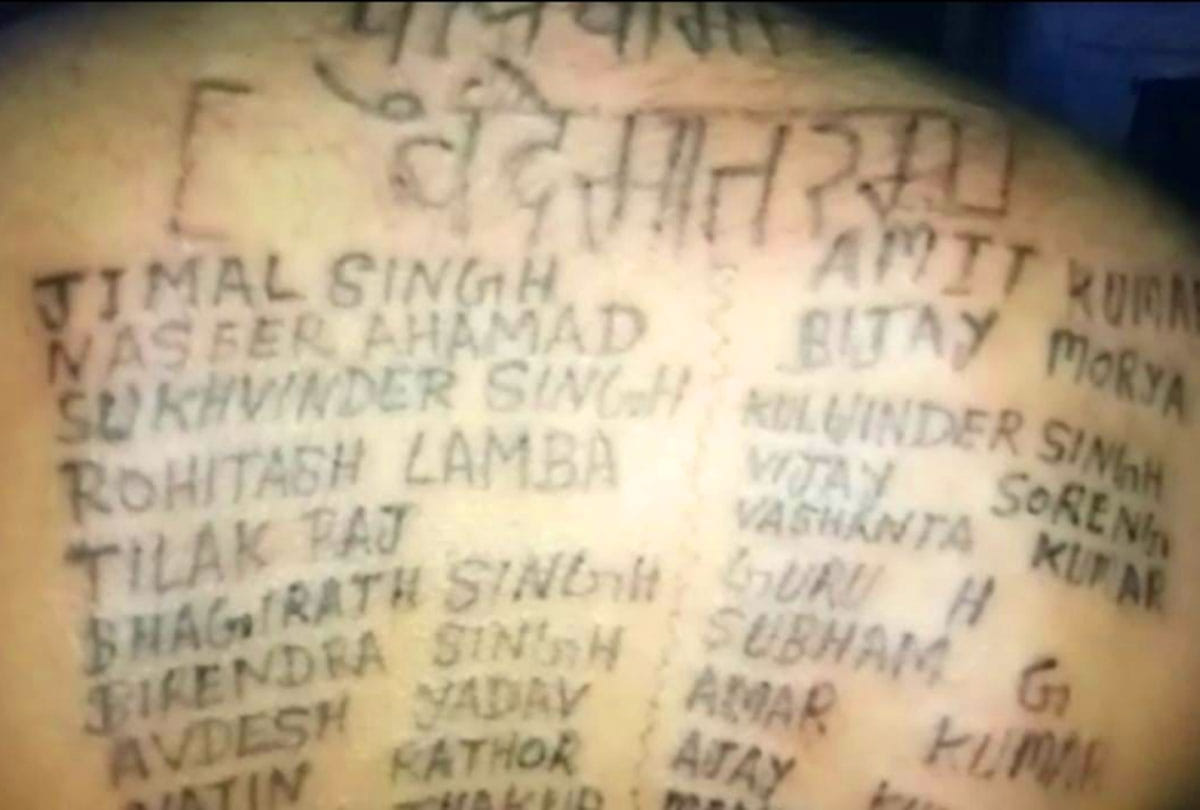 वंदेमातरम्
JIMAL SINGH
NASEER AHAMAD
SUKHVINDER SINGH
ROHITASH LAMBA
TILAK RAJ
BHAGIRATH SINGH
BIRENDRA SINGH
AVDESH YADAV
RATHOR
THAKUR
AMIT KUMAR
BIJAY MORYA
KULWINDER SINGH
VIJAY SORENG
VASHANTA KUMAR
GURU H
SUBHAM G
AMAR KUMAR
AJAY